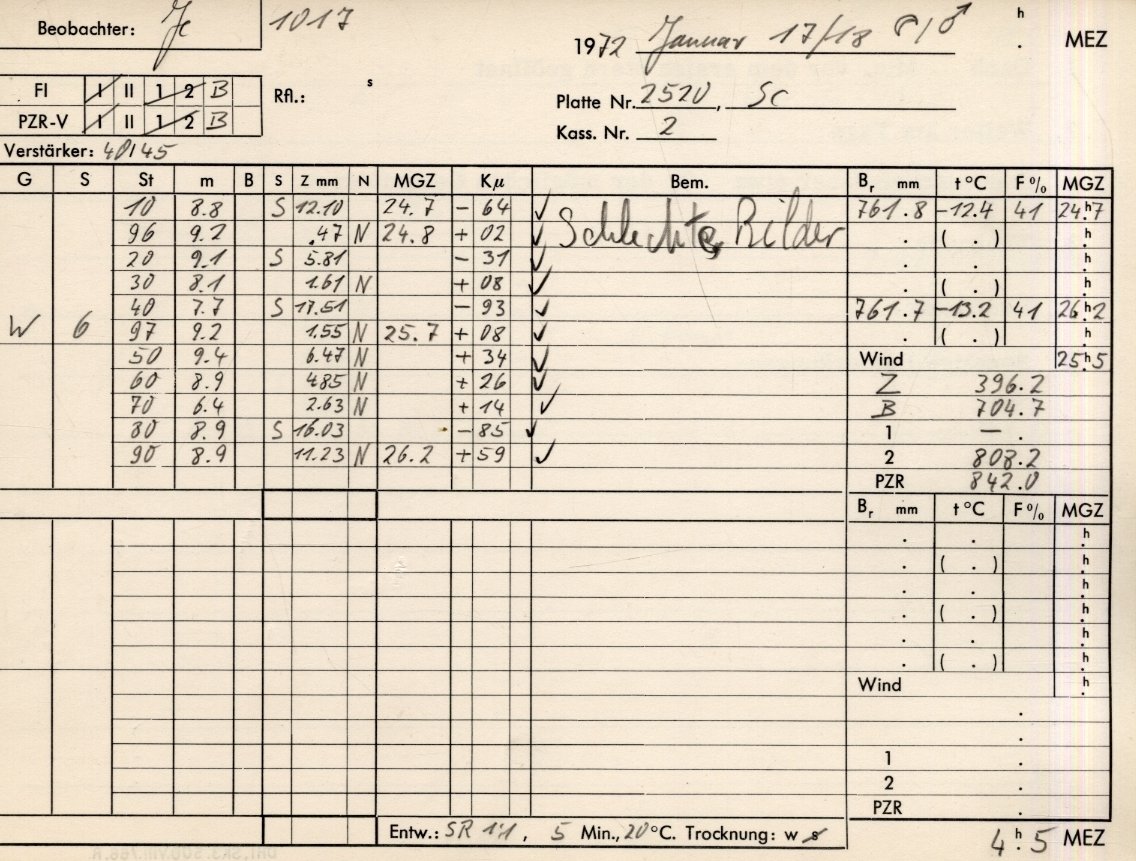 Beobachter: Je 1017 h
1972 Januar 17/18 ♂/♂ . MEZ
FI I II 1 2 B Rfl.: s
PZR-V I II 1 2 B
Platte Nr. 2520, Sc
Kass. Nr. 2
Verstärker: 40/45
G S St m B S Z mm N MGZ Kμ Bem. Br mm t °C F % MGZ
10 8.8 S 12.10 24.7 - 64 ✓ Schlechte Bilder 761.8 -12.4 41 24.h7
96 9.2 .47 N 24.8 + 02 ✓ . ( . ) h
20 9.1 S 5.81 - 31 ✓ . . h
30 8.1 1.61 N + 08 ✓ . ( . ) h
40 7.7 S 17.51 - 93 ✓ 761.7 -13.2 41 26.h2
W 6 97 9.2 1.55 N 25.7 + 08 ✓ . ( . ) h
50 9.4 6.47 N + 34 ✓ Wind 25.h5
60 8.9 4.85 N + 26 ✓ Z 396.2
70 6.4 2.63 N + 14 ✓ B 704.7
80 8.9 S 16.03 - 85 ✓ 1 — .
90 8.9 11.23 N 26.2 + 59 ✓ 2 808.2
PZR 842.0
Br mm t °C F % MGZ
. . h
. ( . ) h
. . h
. ( . ) h
. . h
. ( . ) h
Wind h
.
.
1 .
2 .
PZR .
Entw.: SR 1:1, 5 Min., 20 °C. Trocknung: w s
4.h5 MEZ